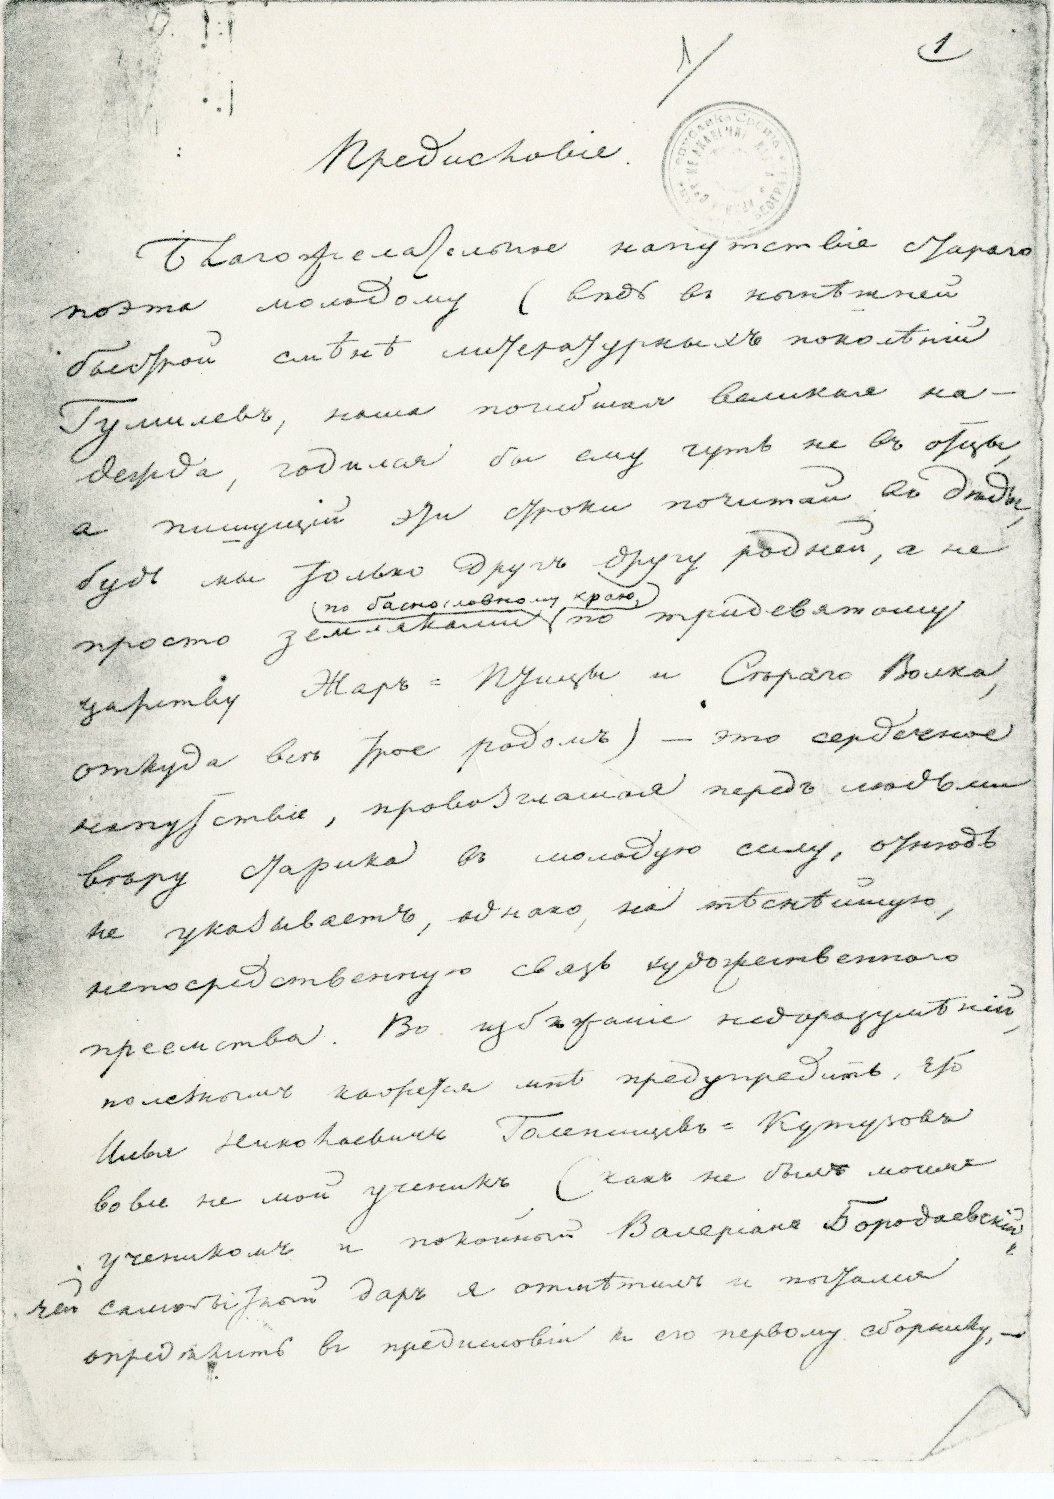 1/
1
Предисловіе.
Благожелательное напутствіе стараго
поэта молодому (ведь въ нынѣшней
быстрой смѣнѣ литературныхъ поколѣній
Гумилевъ, наша погибшая великая на-
дежда, годился бы ему чуть не въ отцы,
а пишущій эти строки почитай въ дѣды,
будь мы только другъ другу родней, а не
по баснословному краю,
просто земляками по тридевятому
царству Жаръ=Птицы и Сѣраго Волка,
откуда всѣ трое родомъ) — это сердечное
напутствіе, провозглашая передъ людьми
вѣру старика въ молодую силу, отнюдь
не указываетъ, однако, на тѣснѣйшую,
непосредственную связь художественнаго
преемства. Во избѣжаніе недоразумѣній,
полезнымъ кажется мнѣ предупредить, что
Илья Николаевичъ Голенищевъ=Кутузовъ
вовсе не мой ученикъ (какъ не былъ моимъ
ученикомъ и покойный Валеріанъ Бородаевскій,
чей самобытный даръ я отмѣтилъ и пытался
опредѣлить въ предисловіи къ его первому сборнику, —